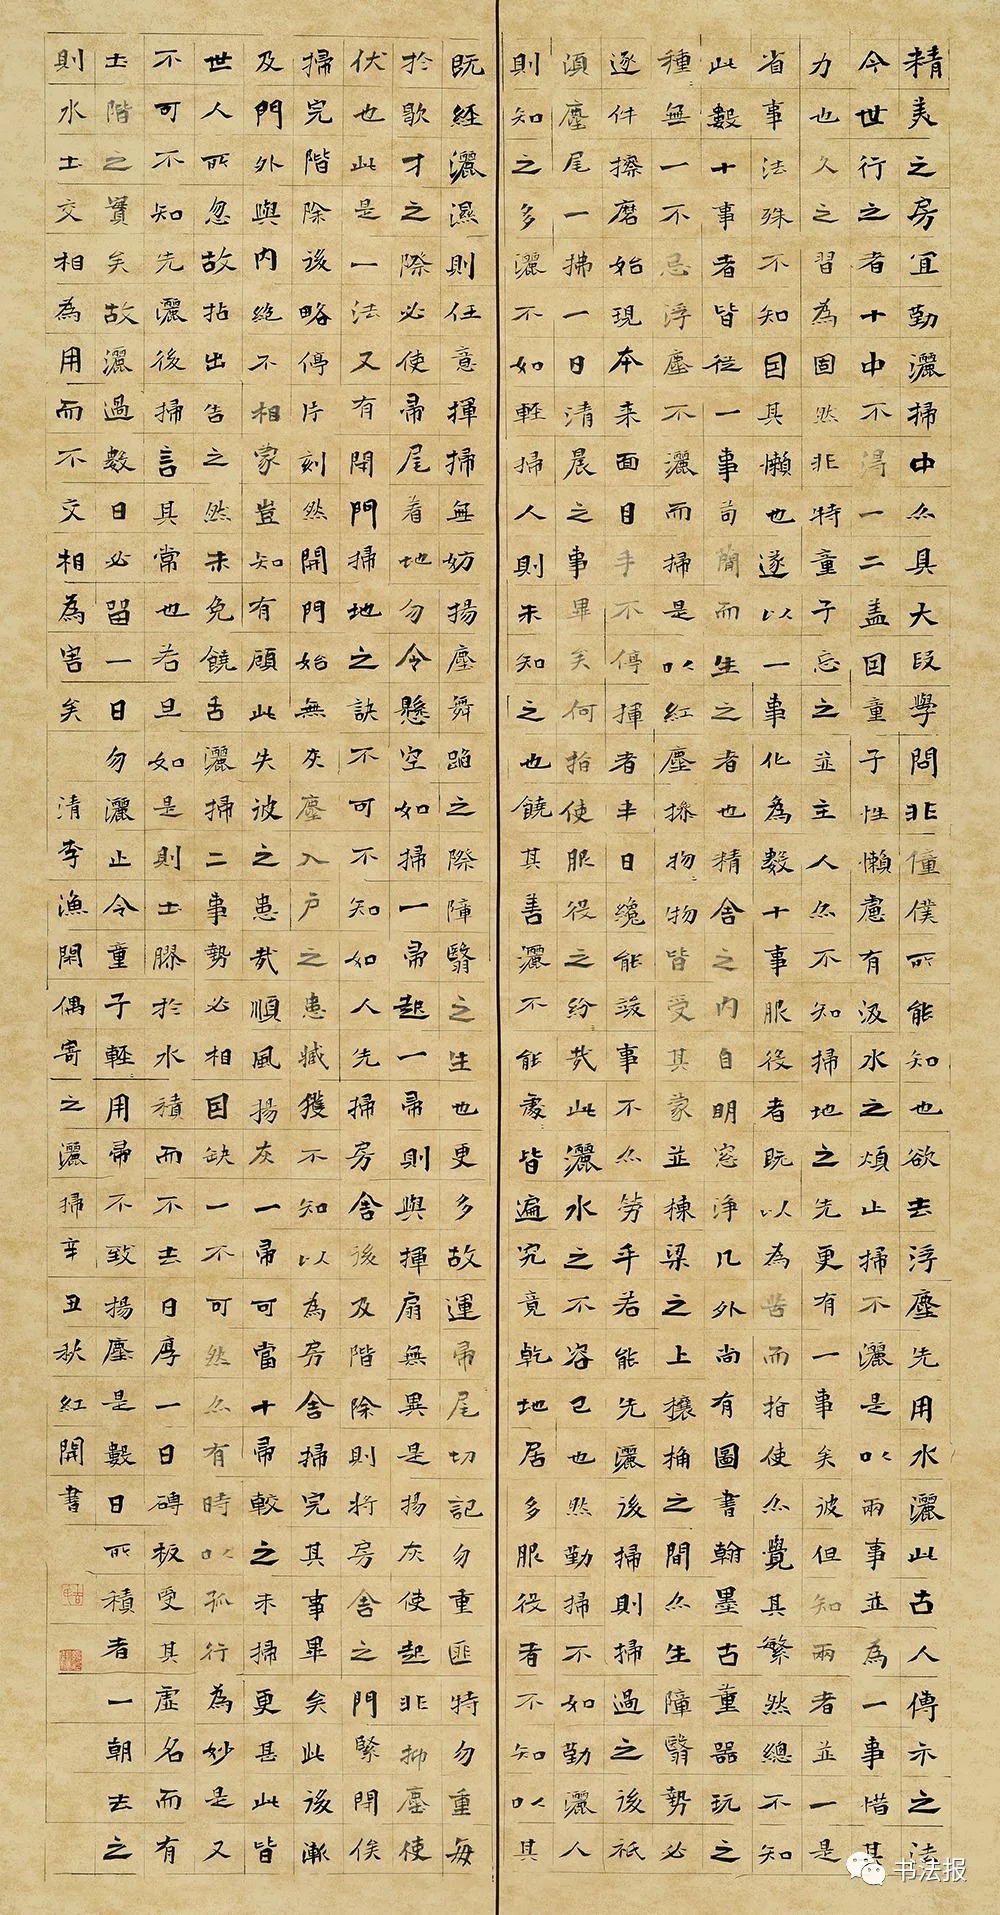 精美之房宜勤灑掃中亦具大段學問非僮僕所能知也欲去浮塵先用水灑此古人傳示之法
今世行之者十中不得一二盖因童子性懶慮有汲水之煩止掃不灑是以兩事並為一事惜其
力也久之習為固然非特童子忘之並主人亦不知掃地之先更有一事矣彼但知兩者並一是
省事法殊不知因其懶也遂以一事化為數十事服役者既以為苦而指使亦覺其繁然總不知
此數十事者皆從一事苟簡而生之者也精舍之内自明窓淨几外尚有圖書翰墨古董器玩之
種無一不忌浮塵不灑而掃是以紅塵摻物物皆受其蒙並棟梁之上榱桷之間亦生障翳勢必
逐件擦磨始現本来面目手不停揮者半日纔能竣事不亦勞乎若能先灑後掃則掃過之後祇
須塵尾一拂一日清晨之事畢矣何指使服役之紛哉此灑水之不容已也然勤掃不如勤灑人
則知之多灑不如輕掃人則未知之也饒其善灑不能處皆遍究竟乾地居多服役者不知以其
既經灑濕則任意揮掃無妨揚塵舞蹈之際障翳之生也更多故運帚尾切記勿重匪特勿重每
於歇才之際必使帚尾着地勿令懸空如掃一帚起一帚則與揮扇無異是揚灰使起非抑塵使
伏也此是一法又有閉門掃地之訣不可不知如人先掃房舍後及階除則將房舍之門緊閉俟
掃完階除後略停片刻然開門始無灰塵入户之患臧獲不知以為房舍掃完其事畢矣此後漸
及門外與内絕不相蒙豈知有顧此失彼之患哉順風揚灰一帚可當十帚較之未掃更甚此皆
世人所忽故拈出告之然未免饒舌灑掃二事勢必相因缺一不可然亦有時以孤行為妙是又
不可不知先灑後掃言其常也若旦如是則土膠於水積而不去日厚一日磚板受其虛名而有
土階之實矣故灑過數日必留一日勿灑止令童子輕用帚不致揚塵是數日所積者一朝去之
則水土交相為用而不交相為害矣 清李漁閑偶寄之灑掃辛丑秋紅開書
书法报